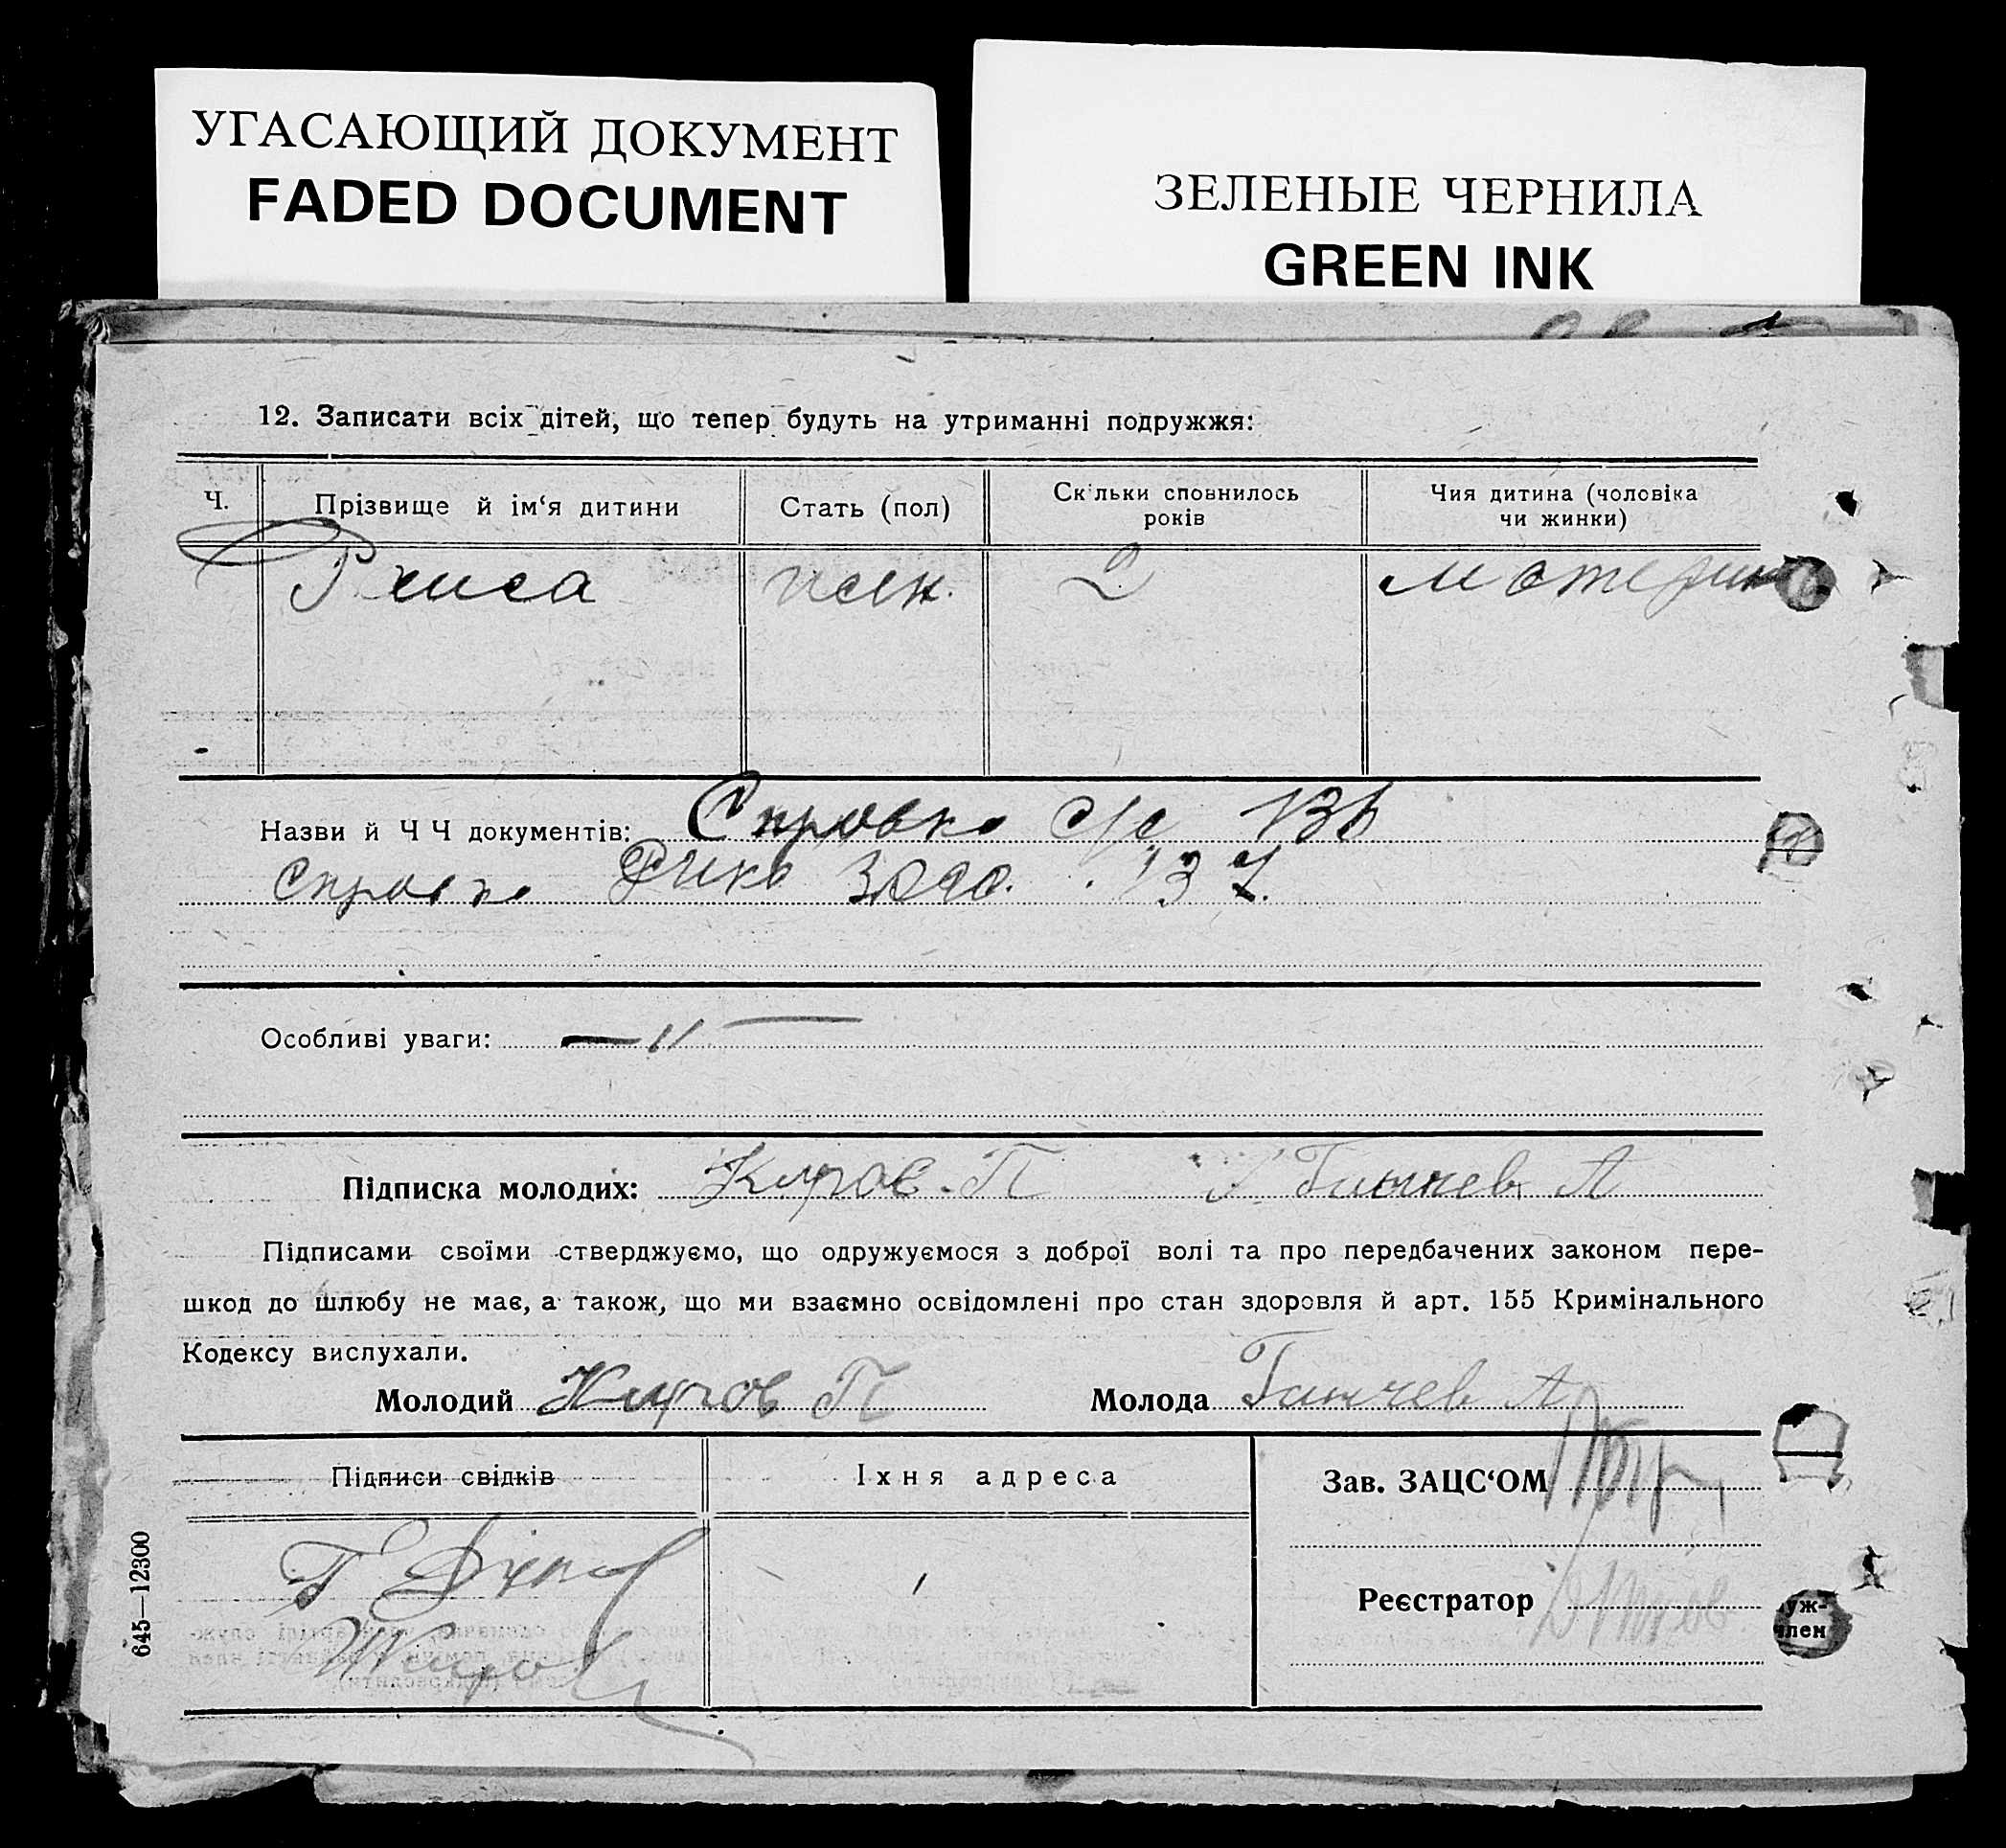 УГАСАЮЩИЙ ДОКУМЕНТ
FADED DOCUMENT
ЗЕЛЕНЫЕ ЧЕРНИЛА
GREEN INK
12. Записати всіх дітей, що тепер будуть на утриманні подружжя:
Ч.
Прізвище й ім‘я дитини
Стать (пол)
Скільки сповнилось
років
Чия дитина (чоловіка
чи жинки)
2
Назви й Ч Ч документів: Справка с/с
Справка 137.
Особливі уваги: — 〃 —
Підписка молодих: Киров. П А
Підписами своїми стверджуємо, що одружуємося з доброї волі та про передбачених законом пере-
шкод до шлюбу не має, а також, що ми взаємно освідомлені про стан здоровля й арт. 155 Кримінального
Кодексу вислухали.
Молодий Киров П
Молода Ганчев А
Підписи свідків
Їхня адреса
Зав. ЗАЦС‘ОМ
Реєстратор
645—12300
уж-
член